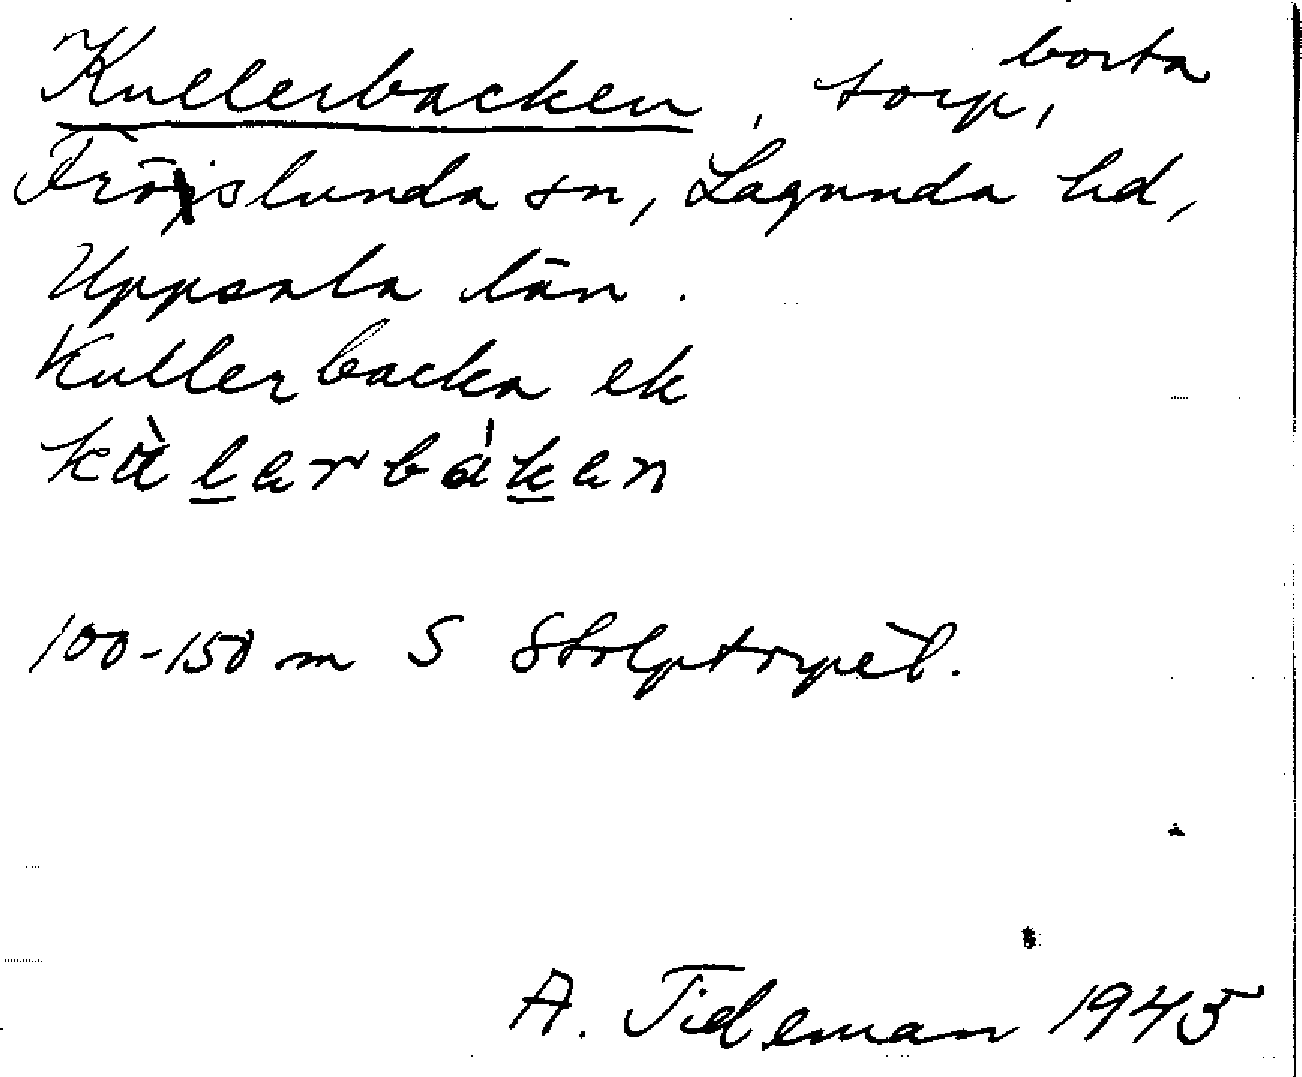 Kullerbacken, torp, borta
Fröslunda sn, Lagunda hd,
Uppsala län.
Kullerbacka ek
kàlerbákan
100-150 m S Stolptorpet.
A. Tideman 1945